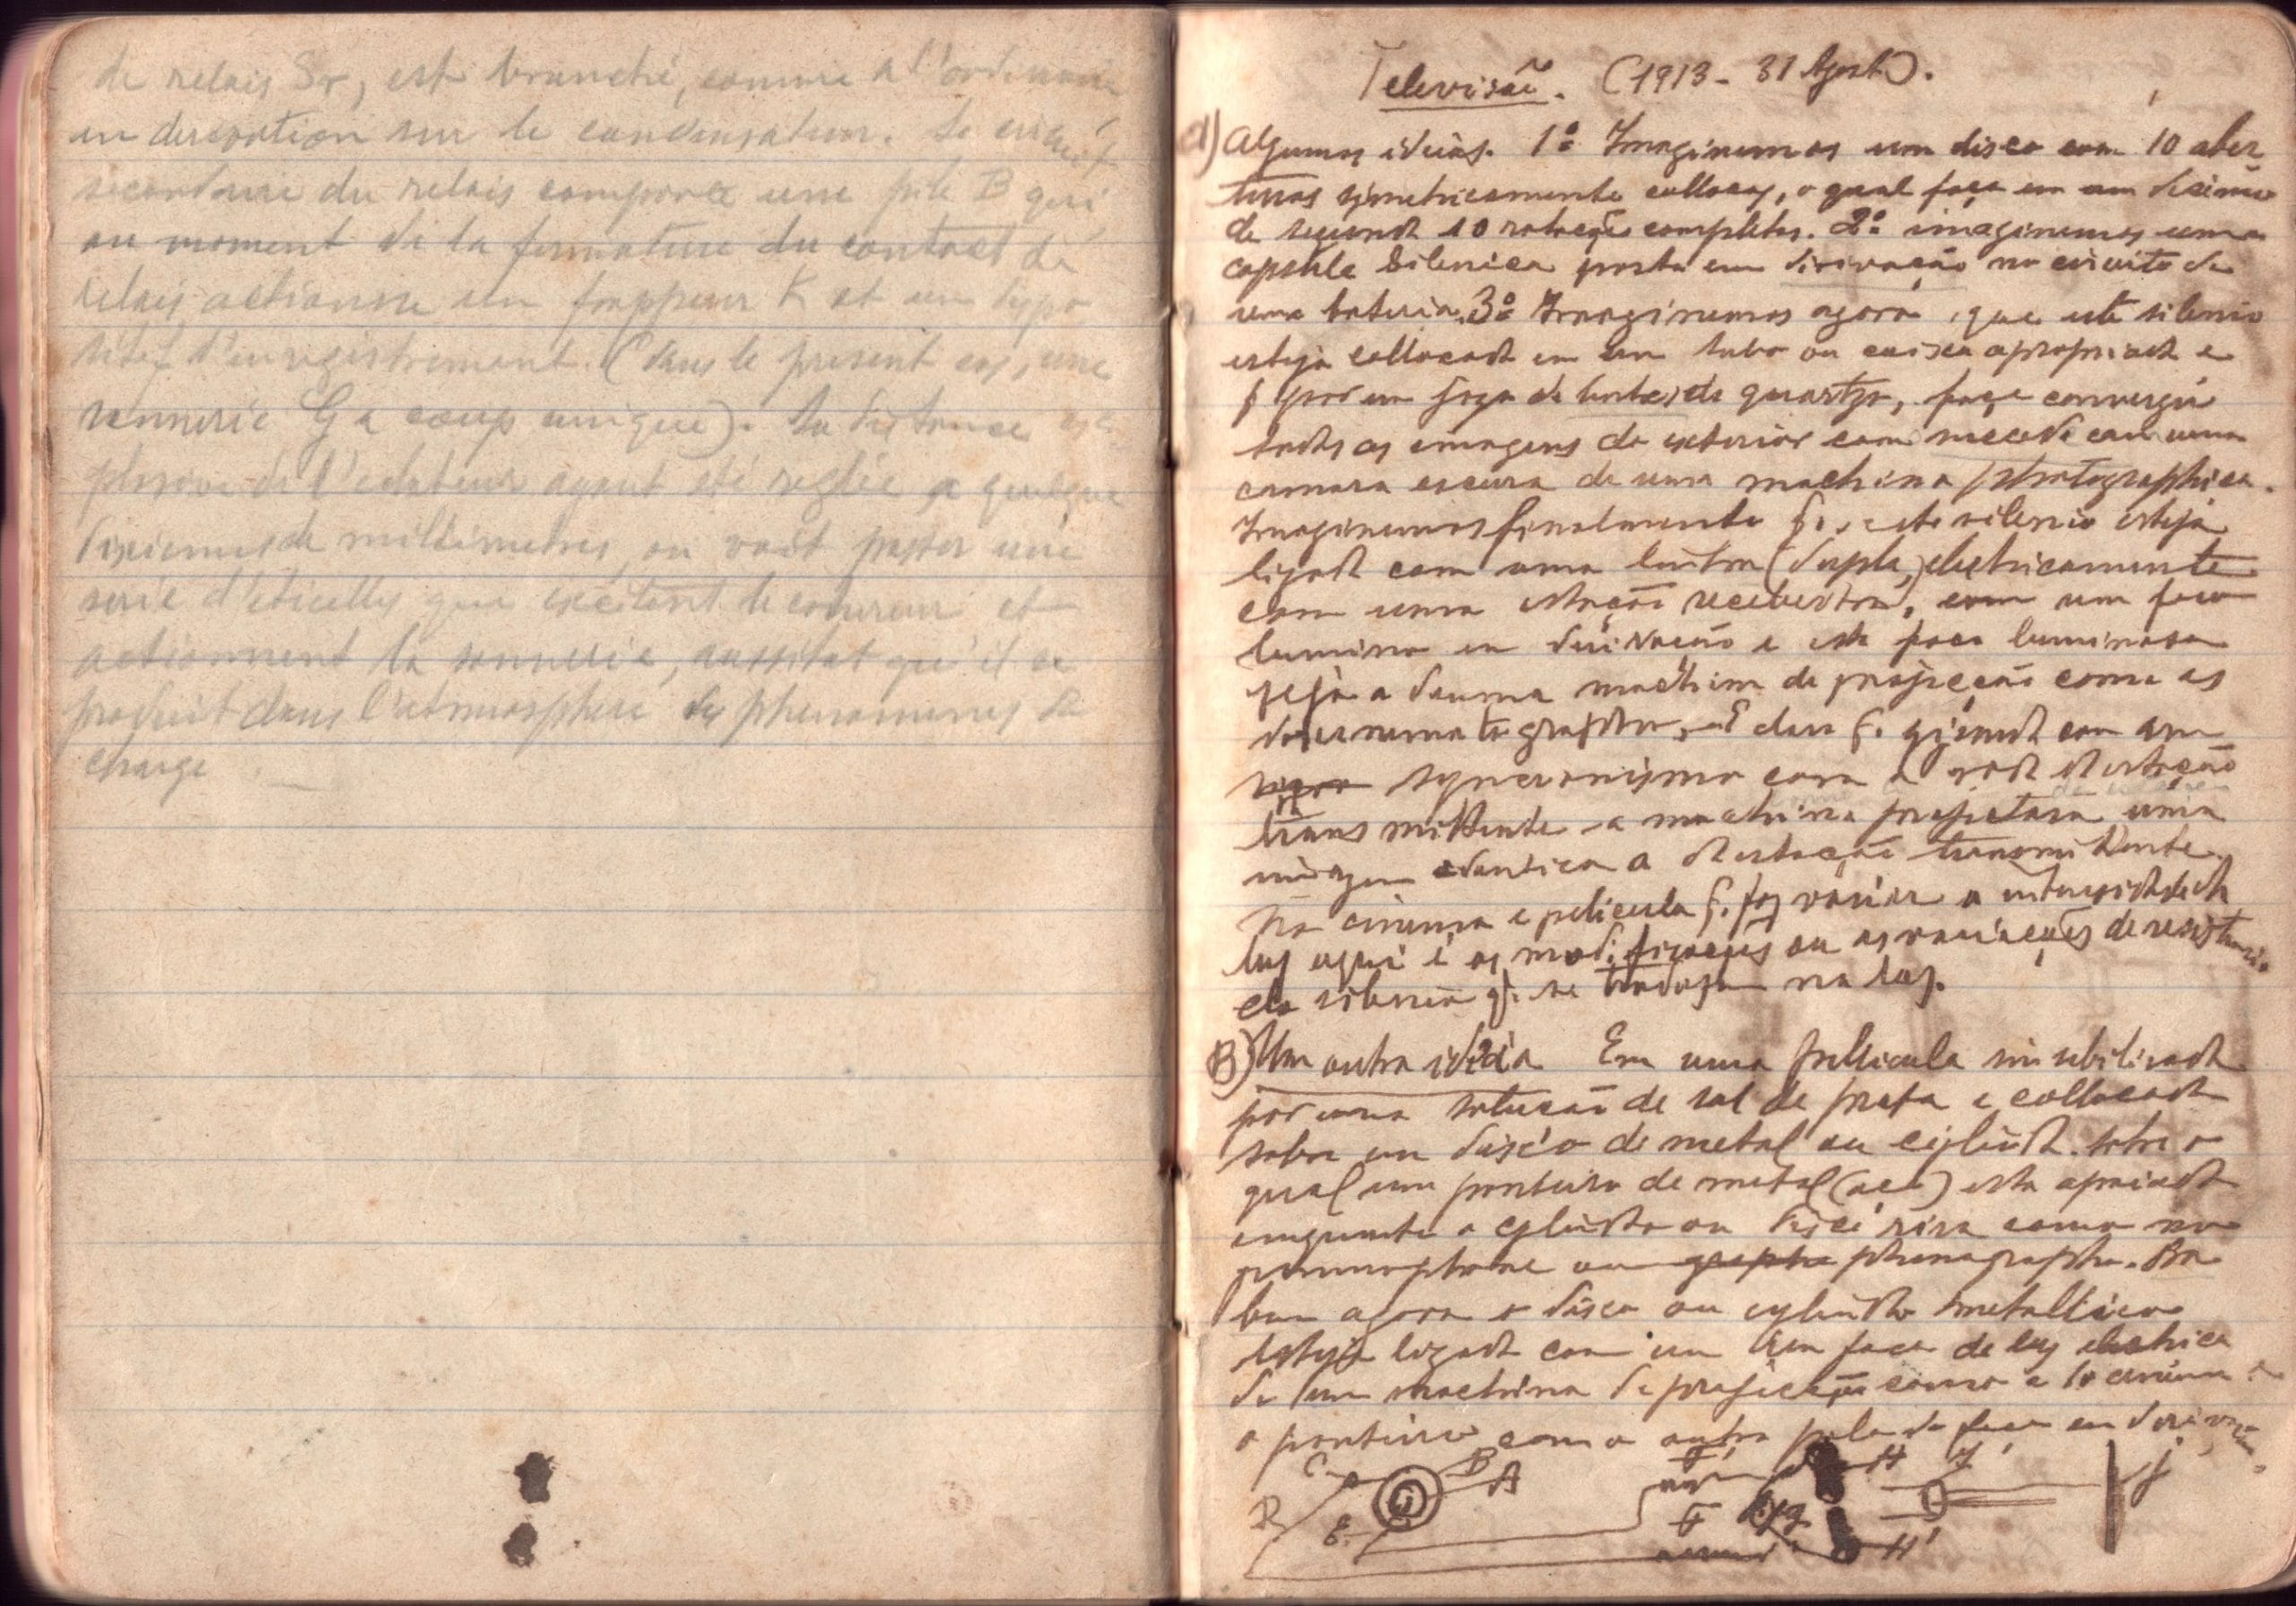 de relais Sr, est branché, comme a l'ordinaire
en derivation sur le condensateur. Le circuit
secondaire du relais comporte une pile B qui
au moment de la fermeture du contact de
relais actionne un frappeur K et un dispo
sitif d'enregistrement. (dans le present cas, une
sonnerie G a coup unique). La distance ex
plosive de l'eclateur ayant été reglée a quelque
dixiemes de millimetres, on voit passer une
serie d'eticelles que excitent le cohereur et
actionnent la sonnerie, aussitot qu'il se
produit dans l'atmosphere des phenomenes de
charge
Televisão. (1913 - 31 Agosto).
a) Algumas idéias. 1º Imaginemos um disco com 10 aber
turas symetricamente collocas, o qual faça em um decimo
de segundo 10 rotações completas. 2º imaginemos uma
capsula silenica posta em dirivação no circuito de
uma bateria. 3º Imaginemos agora, que este silenio
esteja collocado em um tubo ou caixa apropriado e
q por um jogo de lentes de quartzo, faça convergir
todas as imagens do exterior como succede com uma
camara escura de uma machina photographica.
Imaginemos finalmente q. este silenio esteja
ligado com uma linha (dupla,) eletricamente
com uma estação recebedora, com um foco
lumino em dirivação e este foco luminoso
seja o duma machina de projecção como as
do cinematographo, e q. girando com um
syncronismo com a estação
transmittente a machina projetara uma
imagem edentica a da estação transmittente.
No cinema e pelicula q. faz variar a intensidade da
luz aqui é as modificações ou as variações de resistencia
do silenio q. se traduzem na luz.
B) Um outra idéia Em uma pellicula sinsibilisada
por uma solução de sal de prata e collocada
sobre um disco de metal ou cylindro. sobre o
qual um ponteiro de metal (aço) esta apoiado
enquanto o cylindro ou disco gira como no
gramophone ou grapho phonographo. Ora
bem agora o disco ou cylindro metallico
esteja ligado com um foco de luz eletrica
de uma machina de projecção como a do cinema e
o ponteiro com o outro polo do foco em dirivação.
C B A F' H I J
D E F G H'